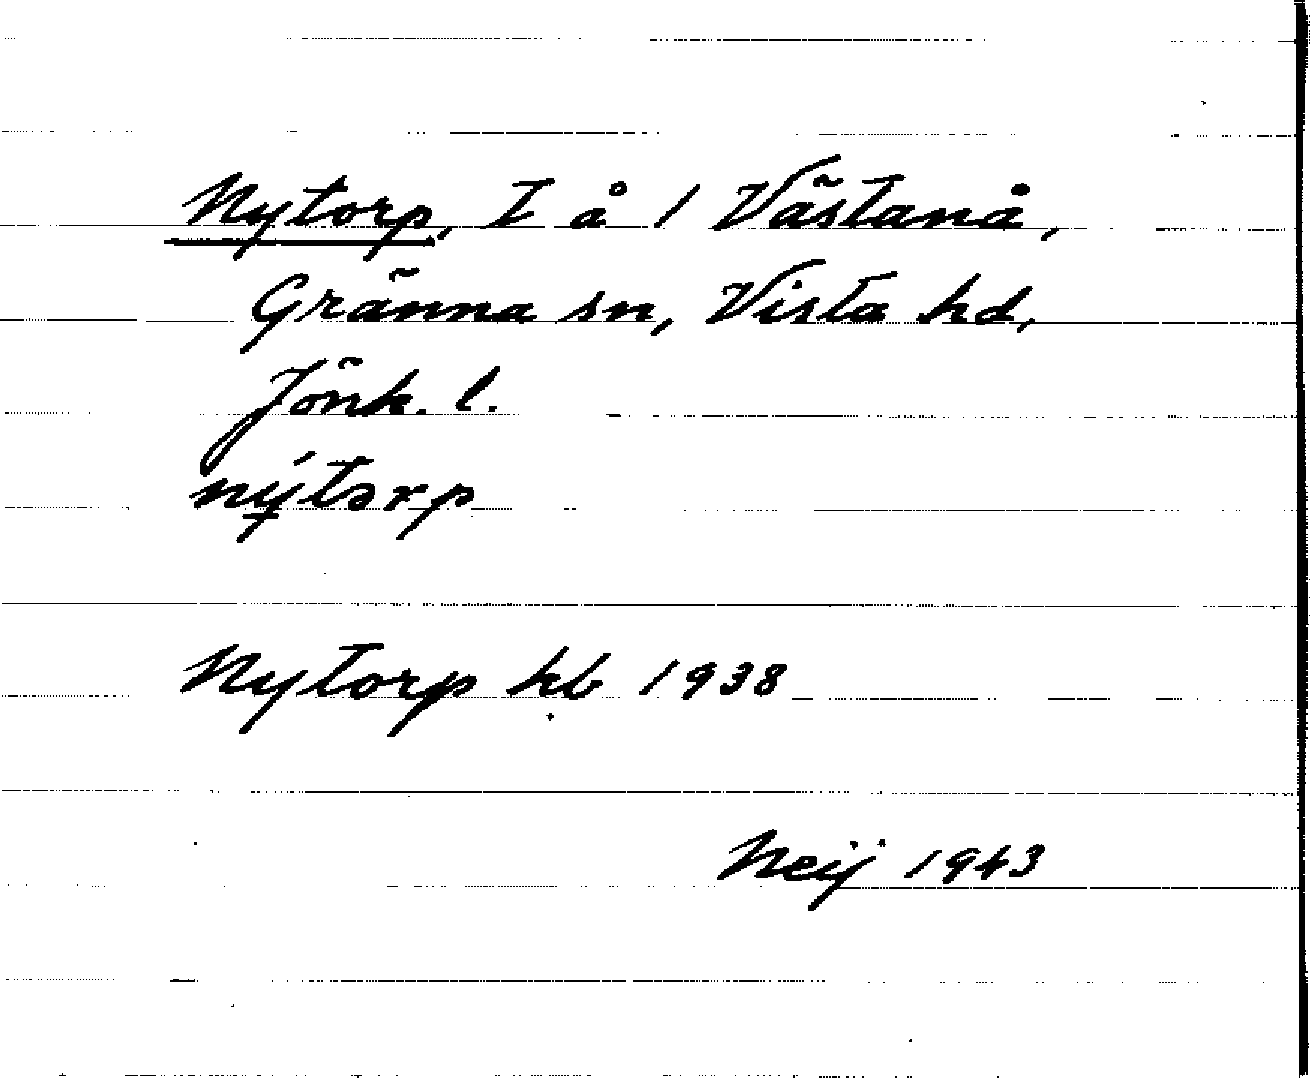 Nytorp, T å 1 Västanå,
Gränna sn, Vista hd,
Jönk. l.
nýtorp
Nytorp kb 1938
Neij 1943